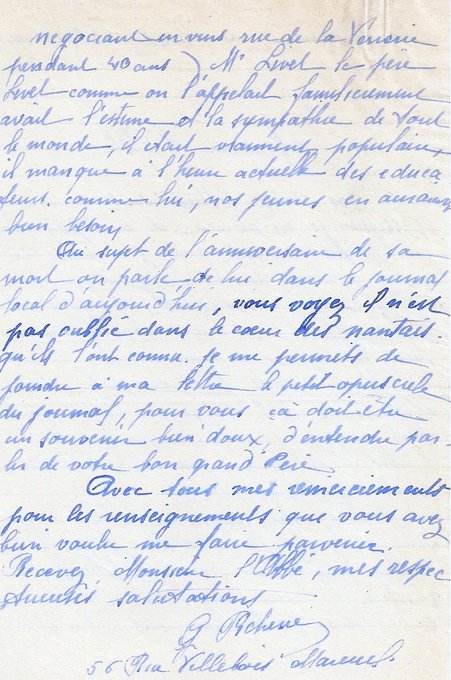 negociant en vins rue de la Verrerie
pendant 40 ans) Mr Livet le père
Livet comme on l'appelait familièrement
avait l'estime et la sympathie de tout
le monde, il était vraiment populaire,
il manque à l'heure actuelle des educa
teurs. comme lui, nos jeunes en auraient
bien besoin
Au sujet de l'anniversaire de sa
mort on parle de lui dans le journal
local d'aujourd'hui, vous voyez il n'est
pas oublié dans le coeur des nantais.
qu'ils l'ont connu. je me permets de
joindre à ma lettre le petit opuscule
du journal, pour vous çà doit être
un souvenir bien doux, d'entendre par-
ler de votre bon grand Père
Avec tous mes remerciements
pour les renseignements que vous avez
bien voulu me faire parvenir.
Recevez Monsieur l'Abbé, mes respec
tueuses salutations
G
56 Rue Villebois Mareuil.